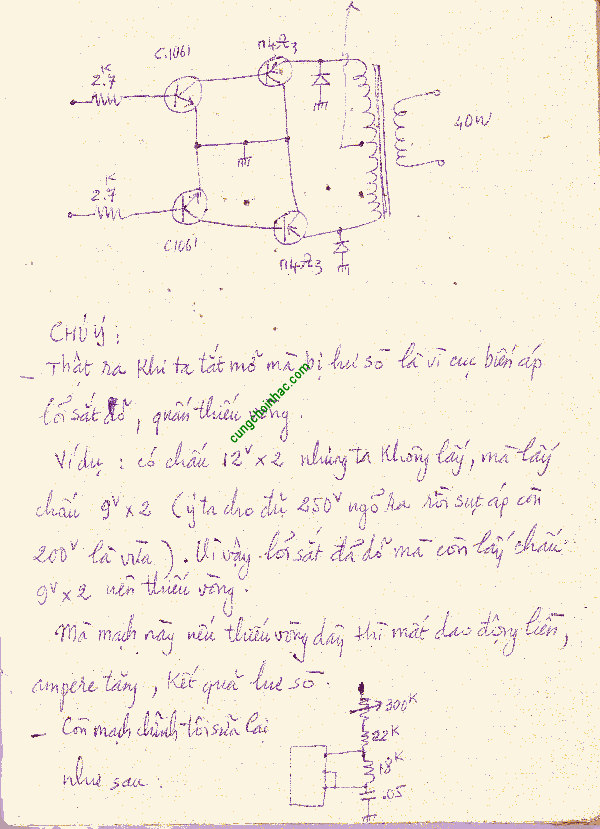 C.1061
2.7 K
40W
2.7 K
C1061
CHÚ Ý :
- Thật ra Khi ta tắt mở mà bị hư sò là vì cục biến áp
lỏi sắt dỏ, quấn thiếu vòng.
cungchoinhac.com
Ví dụ : có chấu 12V x 2 nhưng ta không lấy, mà lấy
chấu 9V x 2 (ý ta cho đủ 250V ngỏ ra rồi sụt áp còn
200V là vừa). Vì vậy lỏi sắt đã dỏ mà còn lấy chấu
9V x 2 nên thiếu vòng.
Mà mạch này nếu thiếu vòng dây thì mất dao động liền,
ampere tăng, Kết quả hư sò.
300K
- Còn mạch chính tôi sửa lại
22K
như sau :
18K
.05